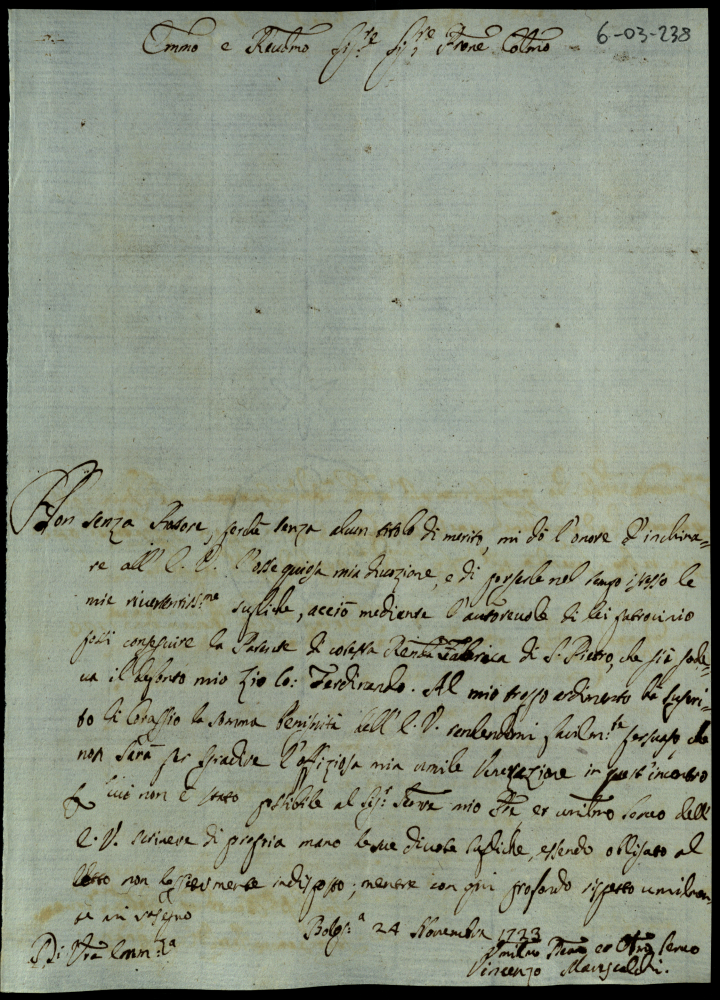 Emmo e Revdmo Sigre Sigre Prone Colmo
6-03-238
Non senza rossore, perche senza alcun titolo di merito, mi dò l'onore d'inchina=
re all' E. V. l'ossequiosa mia divozione, e di porgerle nel tempo stesso le
mie riverentissme supliche, acciò mediante l'autorevole di lei patrocinio
possi conseguire la Patente di cotesta Renda Fabrica di S. Pietro, che già gode=
va il defonto mio Zio Co: Ferdinando. Al mio troppo ardimento hà suggeri=
to di coraggio la somma benignità dell' E. V. rendendomi facilmte persuaso, che
non sarà per sgradire l'offiziosa mia umile venerazione in quest'incontro
cui non è stato possibile al Sigr mio Pre et umilmo Servo dell'
E. V. scrivere di propria mano le sue divote supliche, essendo obligato al
letto non leggiermente indisposto; mentre con più profondo rispetto umilmen=
te mi rasegno
Di Vra Emmza
Bologa 24 Novembre 1723
Umilmo Devmo et Obmo Servo
Vincenzo Marescalchi.